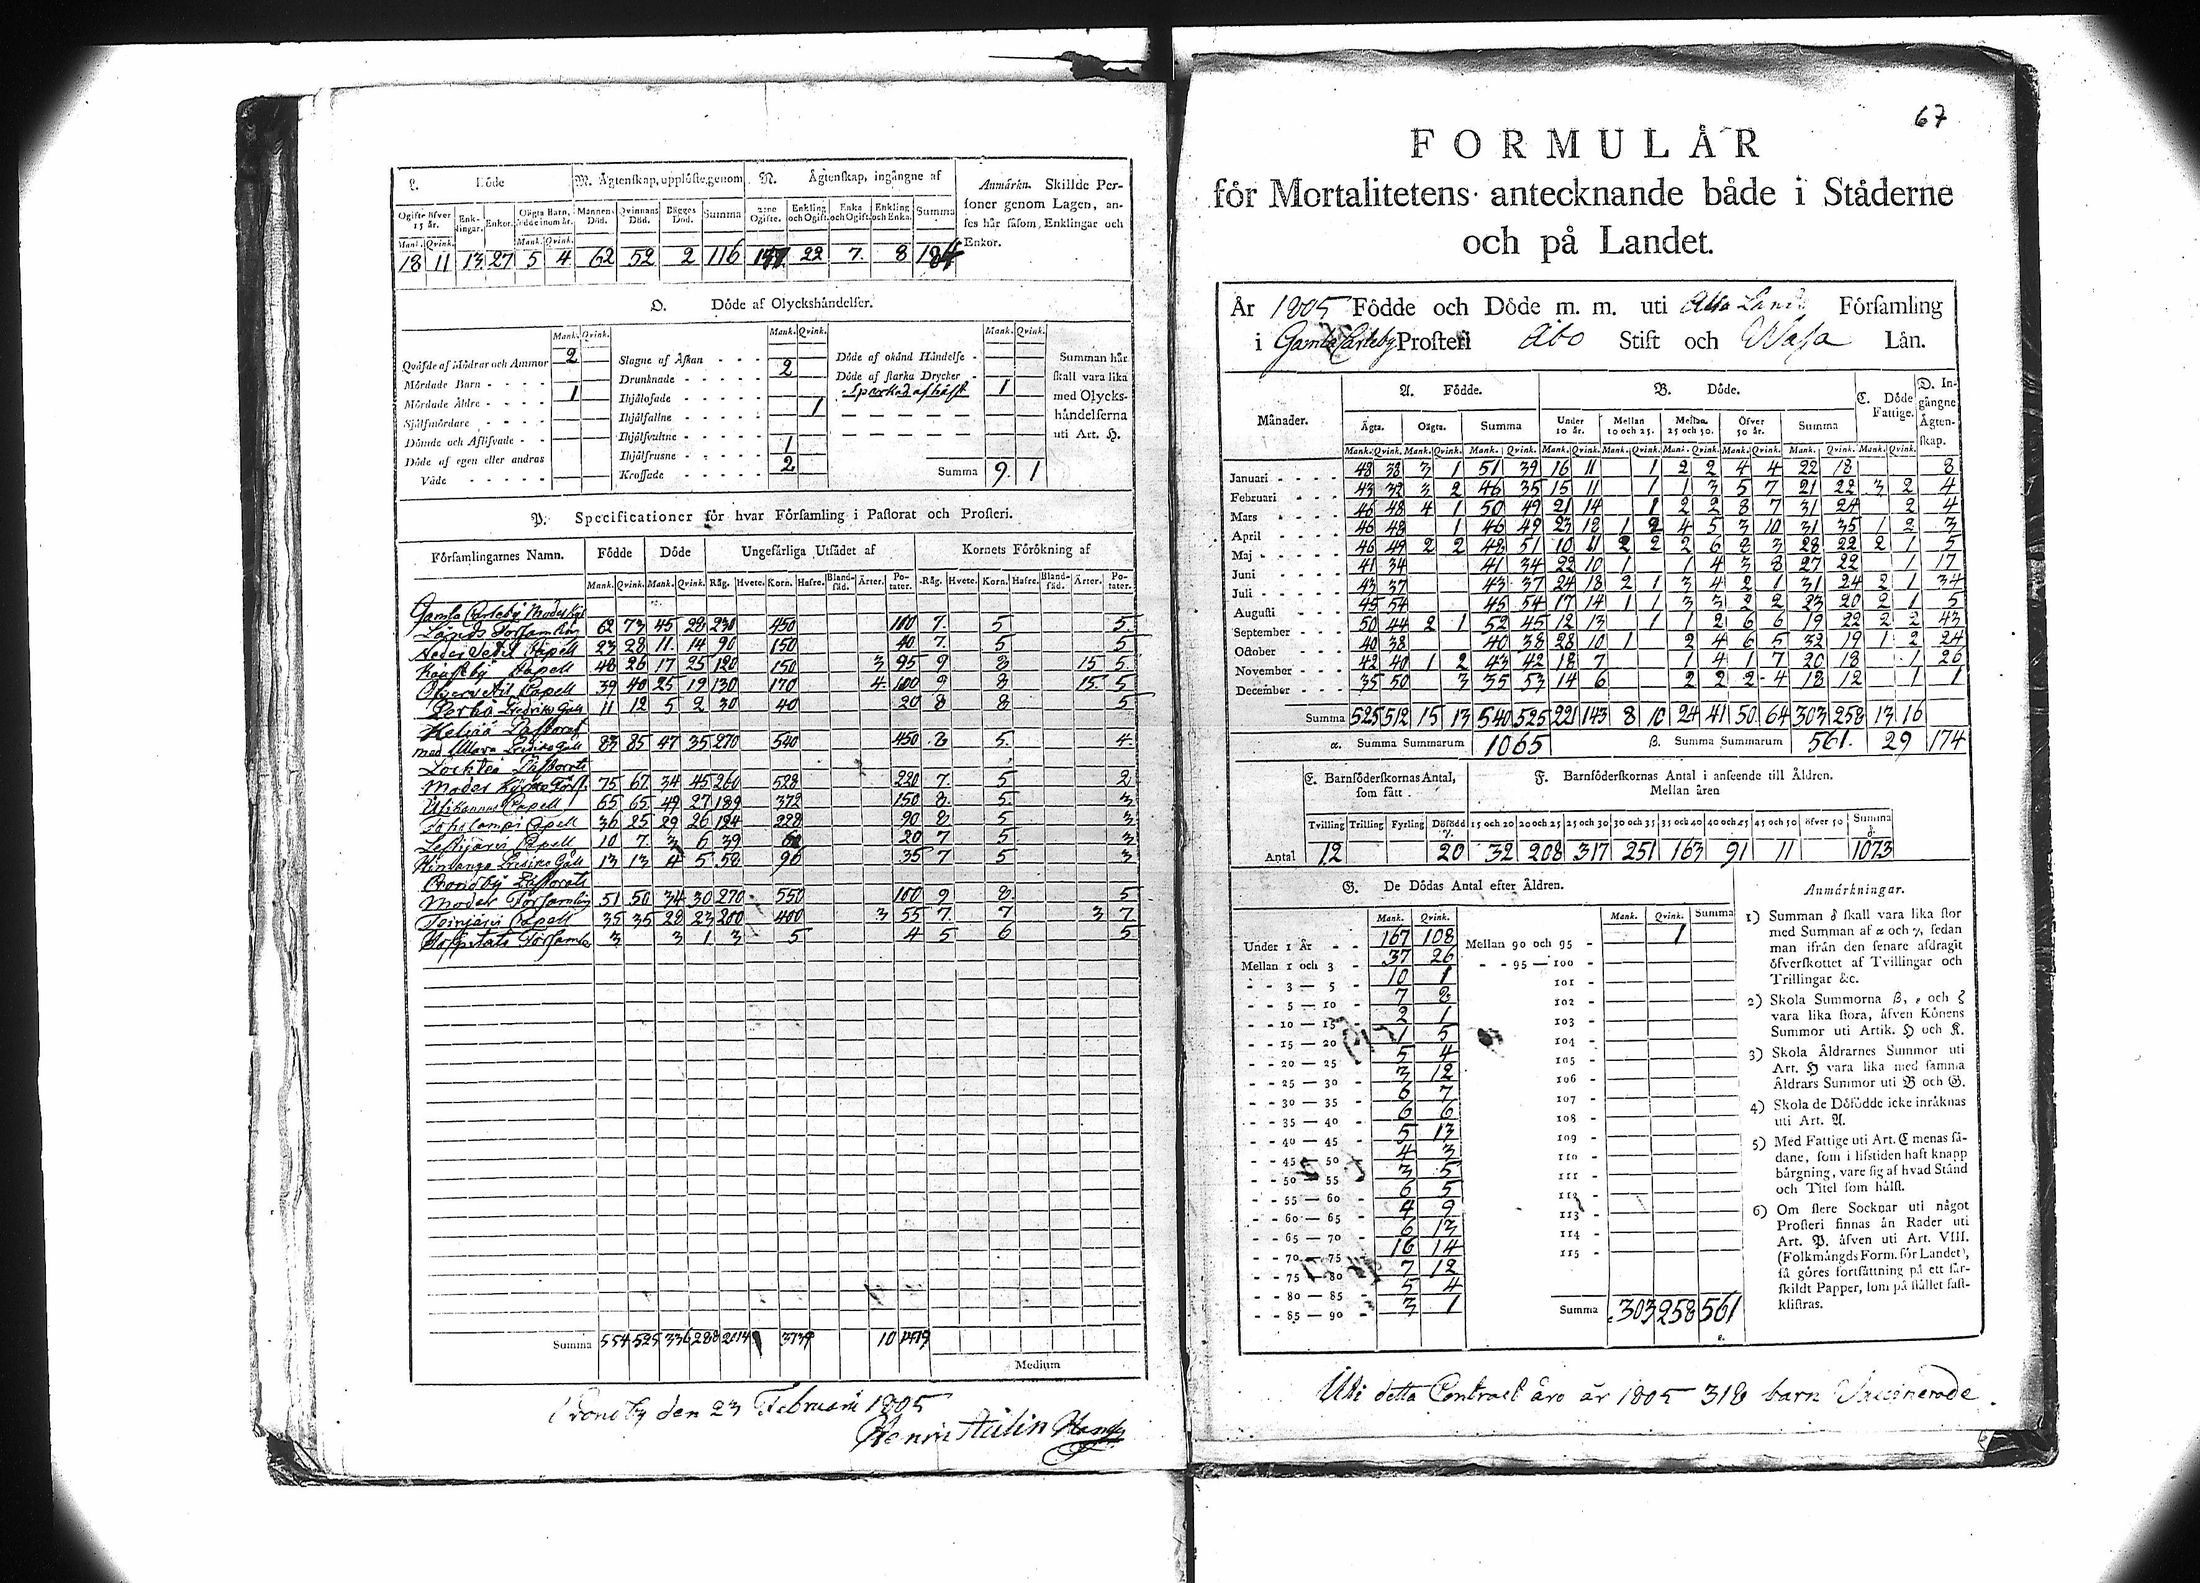 L. Döde
M. Ägtenskap, upplöste genom
N. Ägtenskap, ingångne af
Anmärkn. Skillde Personer genom Lagen, anses här såsom Enklingar och Enkor.
Ogifte öfver 15 år. Enklingar. Enkor. Oägta Barn, födde inom år. Mannens Död. Qvinnans Död. Bägges Död. Summa Ogifte. Enkling och Ogift. Enka och Ogift. Enkling och Enka. Summa
Mank. Qvink. Mank. Qvink.
18 11 13 27 5 4 62 52 2 116 22 7. 8 184
O. Döde af Olyckshändelser.
Mank. Qvink. Mank. Qvink. Mank. Qvink.
Qväfde af Mödrar och Ammor 2
Mördade Barn
Mördade Äldre 1
Självmördare
Dömde och Aflifvade
Döde af egen eller andras Våde
Slagne af Åskan
Drunknade 2
Ihjälosade
Ihjälfallne 1
Ihjälsvultne
Ihjälfrusne 1
Krossade 2
Döde af okänd Händelse
Döde af starka Drycker
Sparkad af häst 1
Summan här skall vara lika med Olyckshändelserna uti Art. H.
Summa 9. 1
P. Specificationer för hvar Församling i Pastorat och Prosteri.
Församlingarnes Namn. Födde Döde Ungefärliga Utsädet af Kornets Förökning af
Mank. Qvink. Mank. Qvink. Råg. Hvete. Korn. Hafre. Blandsäd. Ärter. Potater. Råg. Hvete. Korn. Hafre. Blandsäd. Ärter. Potater.
Gamla Carleby Moderkyrk
Lands Församling 62 73 45 28 230 450 100 7. 5 5.
Capell 23 28 11. 14 90 150 40 7. 5 5
Capell 48 26 17 25 120 150 3 95 9 8 15 5
Capell 39 40 25 19 130 170 4 100 9 8 15. 5
Perho 11 12 5 2 30 40 20 8 8 5
Kelviå Pastorat
med Ullava 83 85 47 35 270 540 450 8 5. 4.
Lochteå Pastorat
Moder Kyrko Förs. 75 67 34 45 260 528 220 7. 5 2
Capell 65 65 49 27 189 372 150 8. 5. 3
Toholampi Capell 36 25 29 26 124 228 90 8 5 3
Lestijärvi Capell 10 7. 3 6 39 20 7 5 3
Himango 13 13 4 5 58 90 35 7 5 3
Cronoby Pastorat
Moder Församling 51 50 34 30 270 550 100 9 8. 5
Capell 35 35 28 23 200 400 3 55 7. 7 3 7
Hospitals Församl. 3 3 1 3 5 4 5 6 5
Summa 554 525 336 288 3739 10
Medium
Cronoby den 23 Februarii 1805
67
FORMULÄR
för Mortalitetens antecknande både i Städerne
och på Landet.
År 1805 Födde och Döde m. m. uti Församling
i Gamla Carleby Prosteri Åbo Stift och Wasa Län.
Månader. A. Födde. B. Döde. C. Döde Fattige. D. Ingångne Ägtenskap.
Ägta. Oägta. Summa Under 10 år. Mellan 10 och 25. Mellan 25 och 50. Öfver 50 år. Summa
Mank. Qvink. Mank. Qvink. Mank. Qvink. Mank. Qvink. Mank. Qvink. Mank. Qvink. Mank. Qvink. Mank. Qvink. Mank. Qvink.
Januari 48 38 3 1 51 39 16 11 1 2 2 4 4 22 18 8
Februari 43 32 3 2 46 35 15 11 1 1 3 5 7 21 22 3 2 4
Mars 46 48 4 1 50 49 21 14 1 2 2 8 7 31 24 2 4
April 46 48 1 46 49 23 18 1 2 4 5 3 10 31 35 1 2 3
Maj 46 49 2 2 48 51 10 11 2 2 2 6 2 3 28 22 2 1 5
Juni 41 34 41 34 22 10 1 1 4 3 8 27 22 1 17
Juli 43 37 43 37 24 18 2 1 3 4 2 1 31 24 2 1 34
Augusti 45 54 45 54 17 14 1 1 3 3 2 2 23 20 2 1 5
September 50 44 2 1 52 45 12 13 1 1 2 6 6 19 22 2 2 43
October 40 38 40 38 28 10 1 2 4 6 5 32 19 1 2 24
November 42 40 1 2 43 42 18 7 1 4 1 7 20 18 1 26
December 35 50 3 35 53 14 6 2 2 2 4 18 12 1 1
Summa 525 512 15 13 540 525 221 143 8 10 24 41 50 64 303 258 13 16
α. Summa Summarum 1065 β. Summa Summarum 561. 29 174
E. Barnföderskornas Antal, som fått
F. Barnföderskornas Antal i anseende till Åldren. Mellan åren
Tvilling Trilling Fyrling Dödfödd γ. 15 och 20 20 och 25 25 och 30 30 och 35 35 och 40 40 och 45 45 och 50 öfver 50 Summa δ.
Antal 12 20 32 208 317 251 163 91 11 1073
G. De Dödas Antal efter Åldren.
Mank. Qvink. Mank. Qvink. Summa
Under 1 År 167 108
Mellan 1 och 3 37 26
3 — 5 10 1
5 — 10 7 8
10 — 15 2 1
15 — 20 1 5
20 — 25 5 4
25 — 30 3 12
30 — 35 6 7
35 — 40 6 6
40 — 45 5 13
45 — 50 4 3
50 — 55 3 5
55 — 60 6 5
60 — 65 4 9
65 — 70 6 13
70 — 75 16 14
75 — 80 7 12
80 — 85 5 4
85 — 90 3 1
Mellan 90 och 95 1
95 — 100
101
102
103
104
105
106
107
108
109
110
111
112
113
114
115
Summa 303 258 561
Anmärkningar.
1) Summan δ skall vara lika stor
med Summan af α och γ, sedan
man ifrån den senare afdragit
öfverskottet af Tvillingar och
Trillingar &c.
2) Skola Summorna β, ε och ζ
vara lika stora, äfven Könens
Summor uti Artik. H och K.
3) Skola Åldrarnes Summor uti
Art. H vara lika med samma
Åldrars Summor uti B och G.
4) Skola de Dödfödde icke inräknas
uti Art. A.
5) Med Fattige uti Art. C menas sådane,
som i lifstiden haft knapp
bärgning, vare sig af hvad Stånd
och Titel som hälst.
6) Om flere Socknar uti något
Prosteri finnas än Rader uti
Art. P. äfven uti Art. VIII.
(Folkmängds Form. för Landet),
så göres fortsättning på ett särskildt
Papper, som på stället fastklistras.
Uti detta Contract äro år 1805 318 barn Vaccinerade.